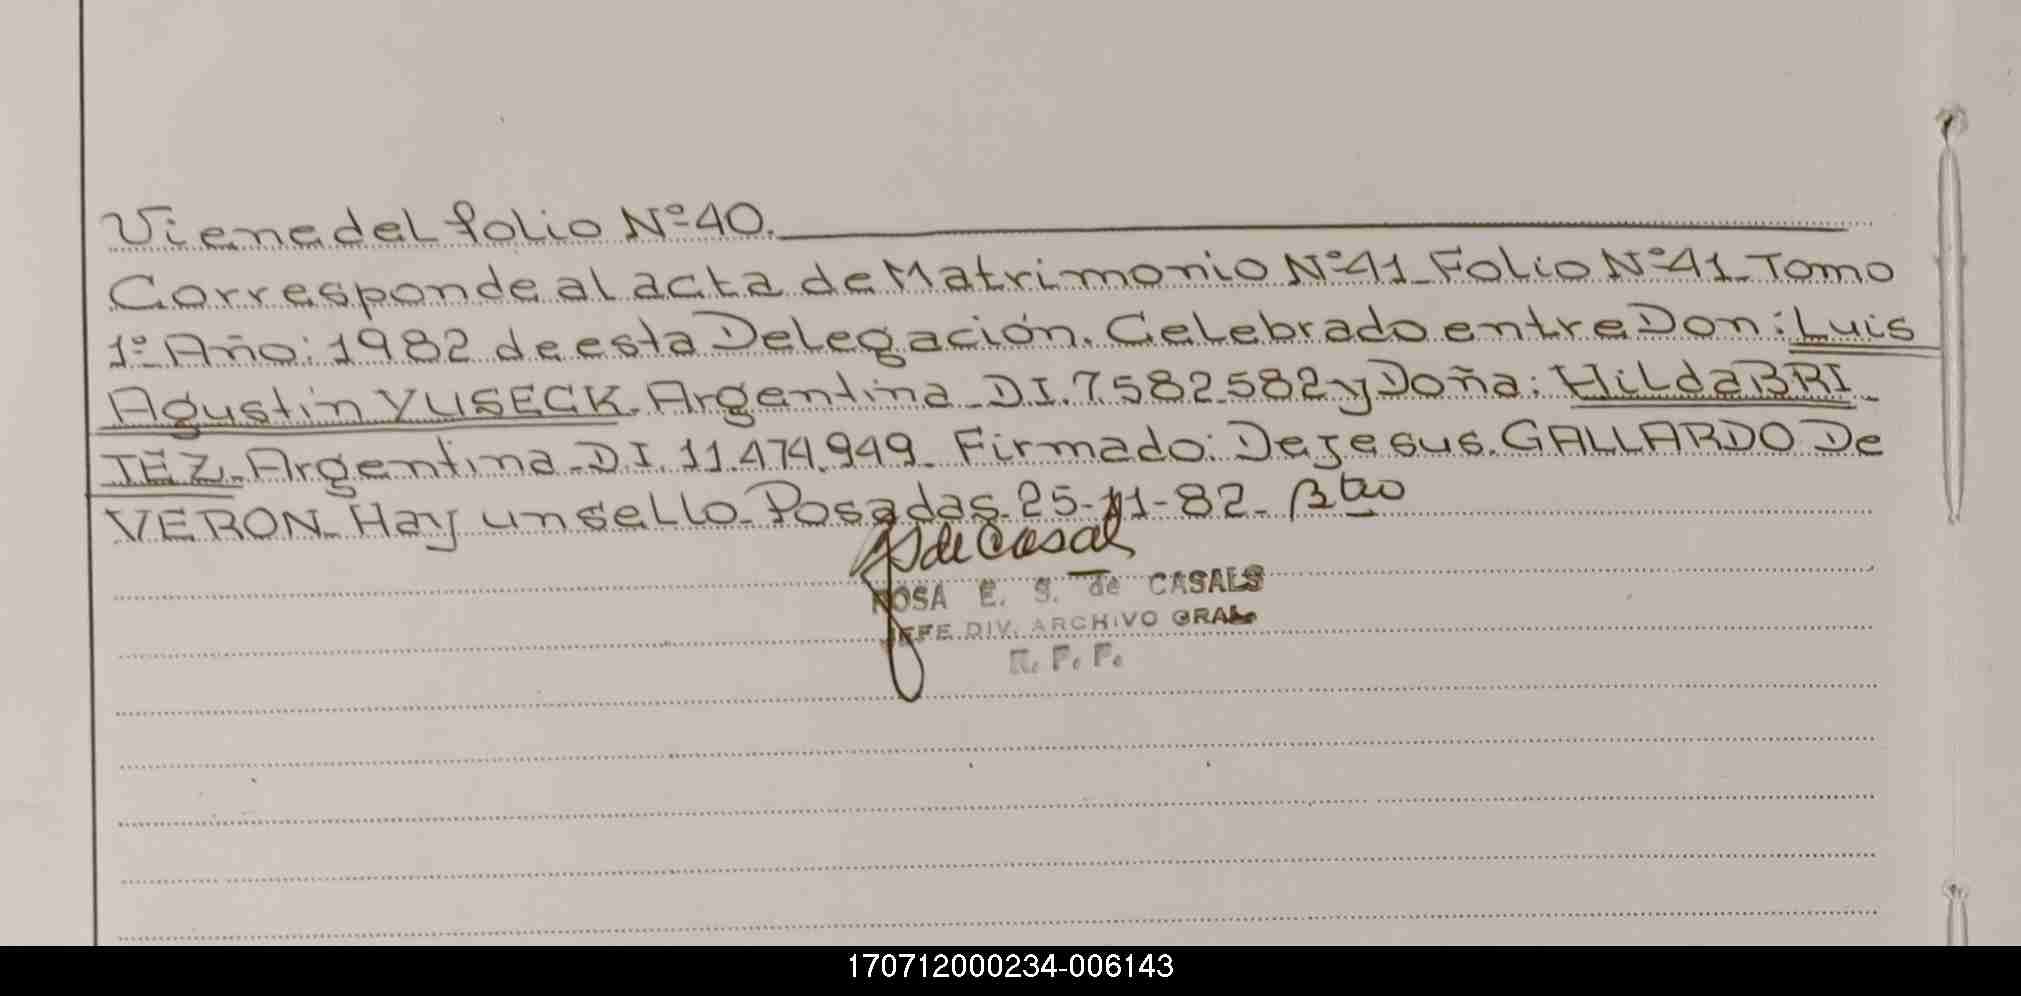 Viene del folio Nº 40.
Corresponde al acta de Matrimonio Nº 41_Folio Nº 41_Tomo
1º Año: 1982 de esta Delegación. Celebrado entre Don: Luis
Agustin YUSECK. Argentina_DI. 7.582.582 y Doña: Hilda BRI_
TEZ_Argentina_DI. 11.474.949_ Firmado: De Jesus. GALLARDO De
VERON_Hay un sello_Posadas_25-11-82_
de Casal
ROSA E. S. de CASALS
JEFE DIV. ARCHIVO GRAL.
R. P. P.
170712000234-006143